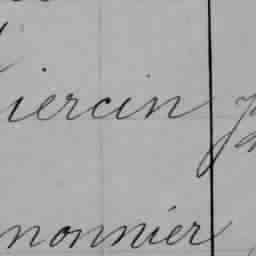 iercin
monnier